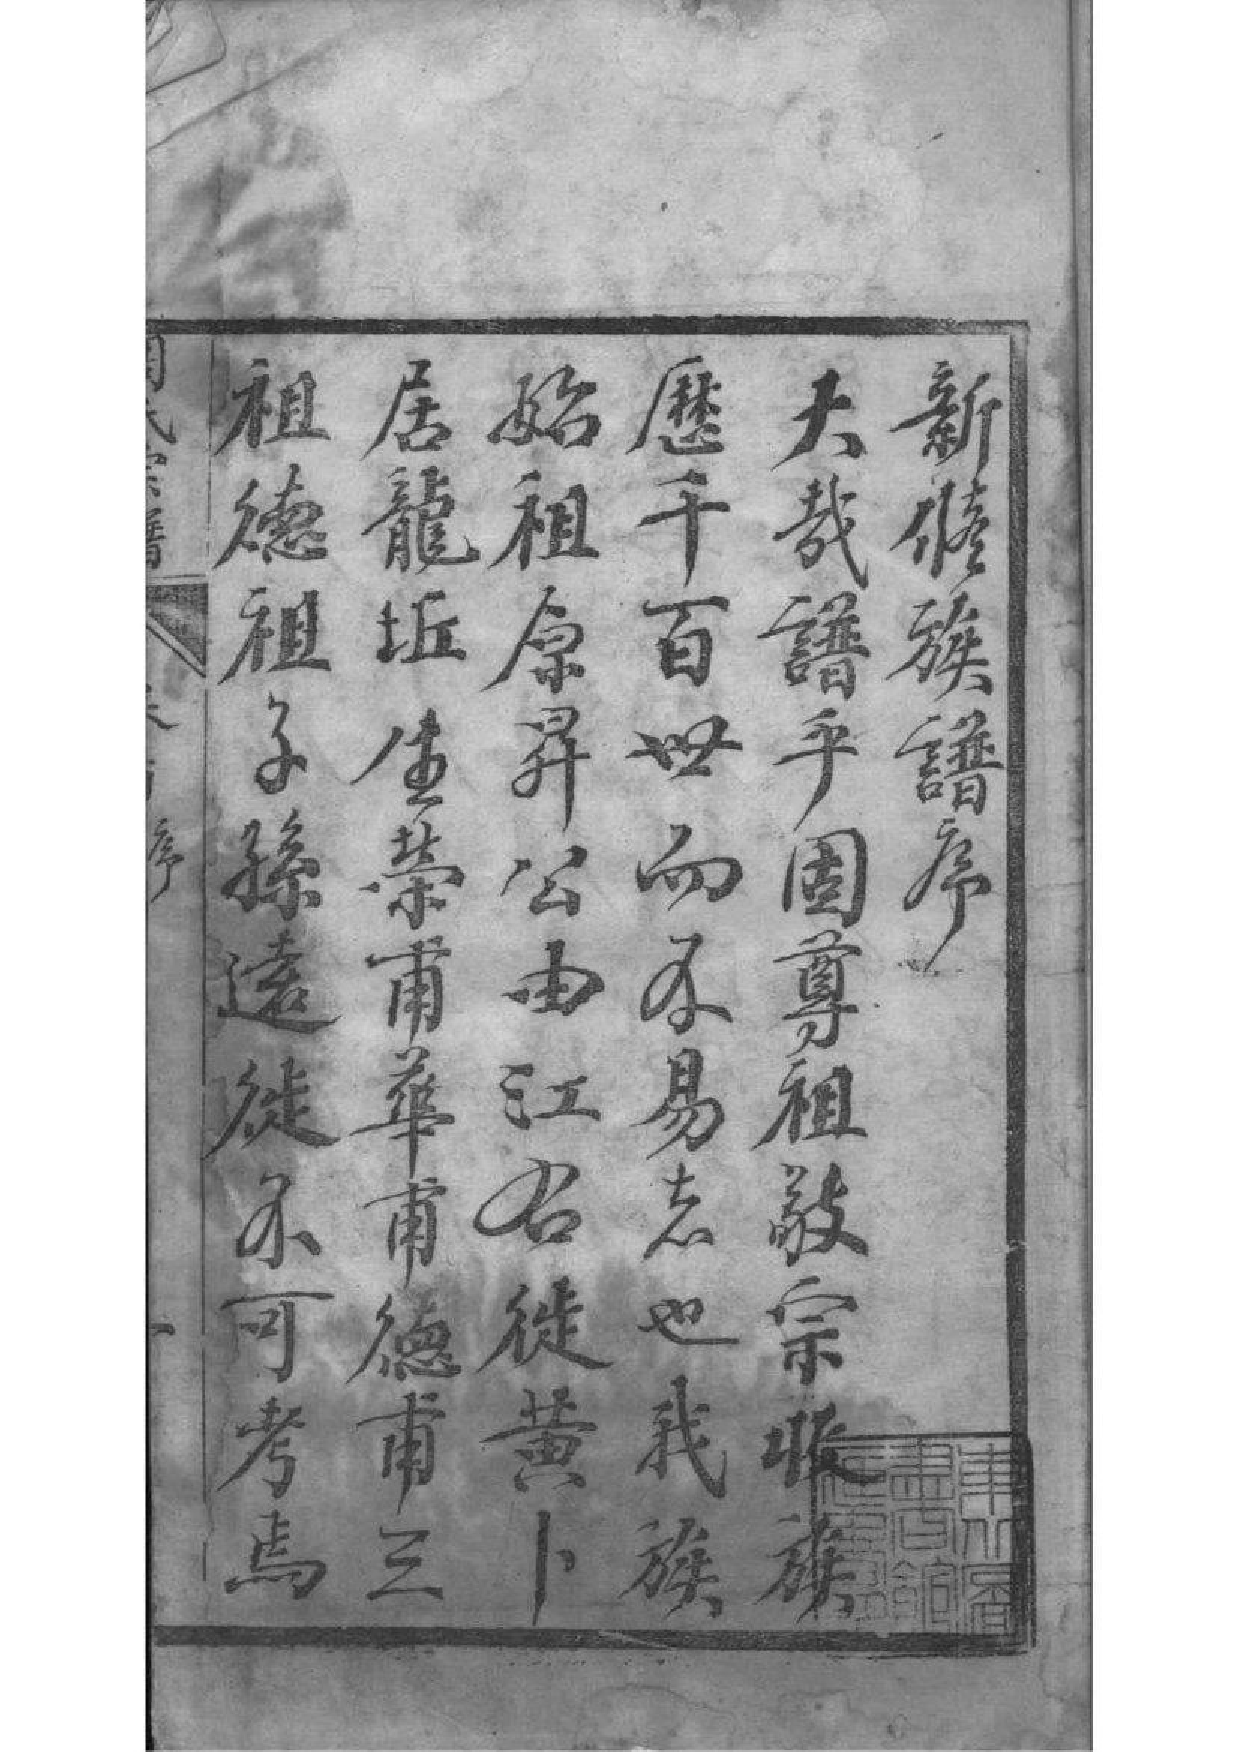 新修族譜序
大哉譜乎固尊祖敬宗收族
歷千百世而不易志也我族
始祖原昇公由江右徙黃卜
居龍坵生榮甫華甫德甫三
祖德祖子孫遠徙不可考焉
氏宗譜
序
一